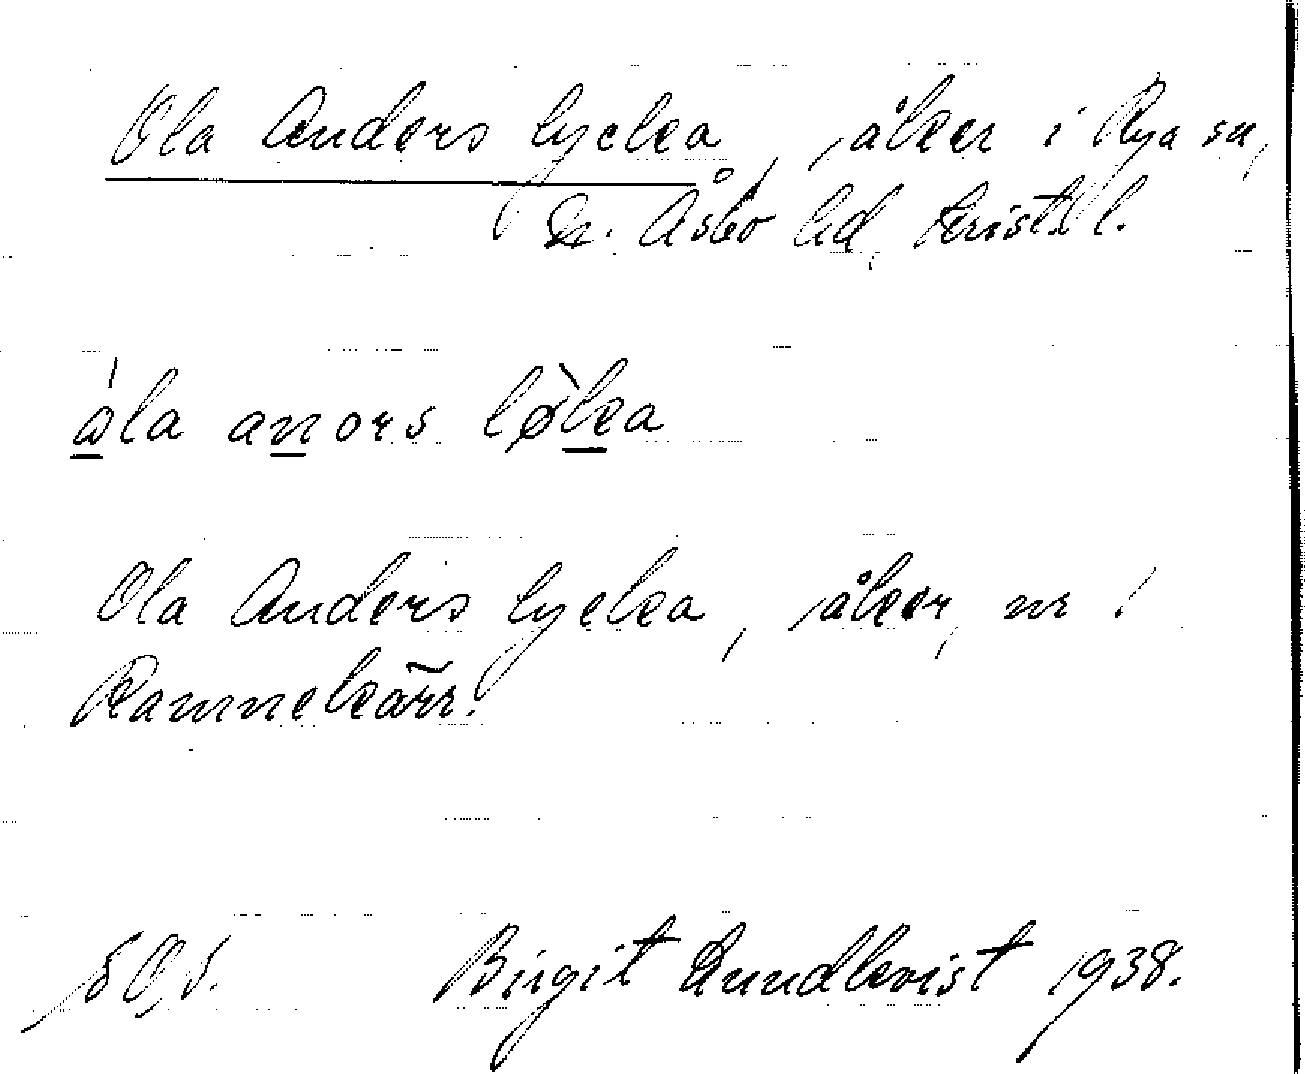 Ola Anders lycka, åker i Rya sn,
N. Åsbo hd, Krist. l.
åla anors løka
Ola Anders lycka, åker, nr 1
Rammekärr.
Birgit Lundkvist 1938.